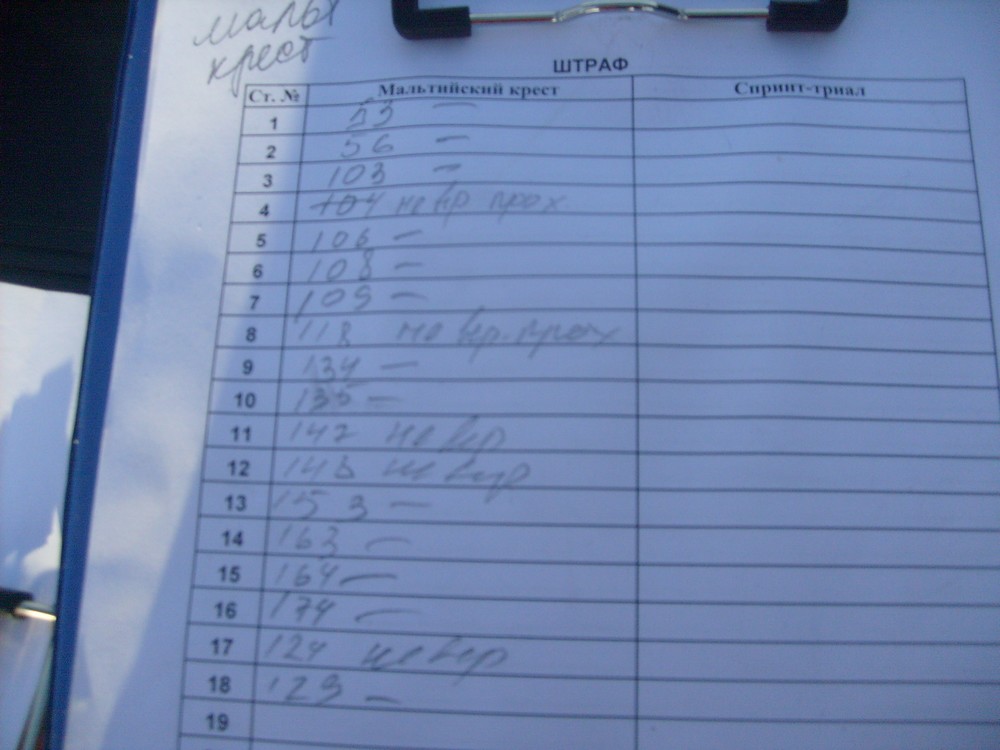 мальт
крест
ШТРАФ
Ст. № Мальтийский крест Спринт-триал
1 53 —
2 56 —
3 103 —
4 104 не вр прох
5 106 —
6 108 —
7 109 —
8 118 не вр. прох
9 134 —
10 135 —
11 142 не вр
12 143 не вер
13 153 —
14 163 —
15 164 —
16 174 —
17 124 не вер
18 129 —
19